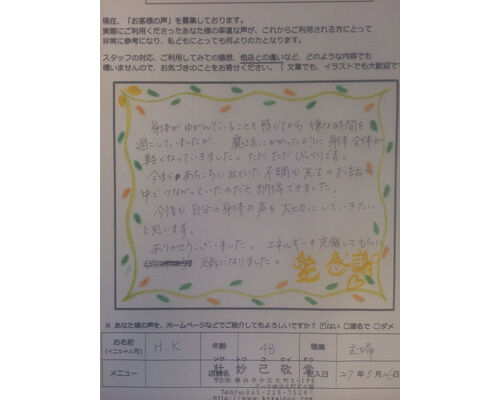 現在、「お客様の声」を募集しております。
実際にご利用くださったあなた様の率直な声が、これからご利用される方にとって
非常に参考になり、私どもにとっても何よりの力となります。
スタッフの対応、ご利用してみての感想、他店との違いなど、どのような内容でも
構いませんので、お気づきのことをお寄せください。（文章でも、イラストでも大歓迎で
身体がゆがんでいることを感じてから 嫌な時間を
過ごしていましたが… 魔法にかかったように身体全体が
軽くなっていきました。ただただびっくりです。
今までのあちこちに出ていた不調も先生のお話の
中でつながっていたのだと納得できました。
今後も自分の身体の声を大切にしていきたい
と思います。
ありがとうございました。 エネルギーを充電してもらい
元気になりました。
愛 感謝
※ あなた様の声を、ホームページなどでご紹介してもよろしいですか？ はい □匿名で □ダメ
お名前 H.K 年齢 48 職業 主婦
(イニシャル可)
メニュー 店舗名 記入日 27年5月26日
妙己敬堂
横浜市中区元町